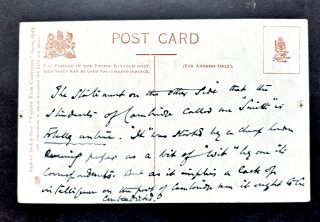 POST CARD
FOR POSTAGE IN THE UNITED KINGDOM ONLY,
THIS SPACE MAY BE USED FOR CORRESPONDENCE.
(FOR ADDRESS ONLY)
The Statement on the other side that the
Students of Cambridge called me "Smith" is
wholly untrue. "It" was started by a cheap London
Evening paper as a bit of "Wit" by one its
correspondents. And as it implies a lack of
intelligence on the part of Cambridge men it ought to be
contradicted.